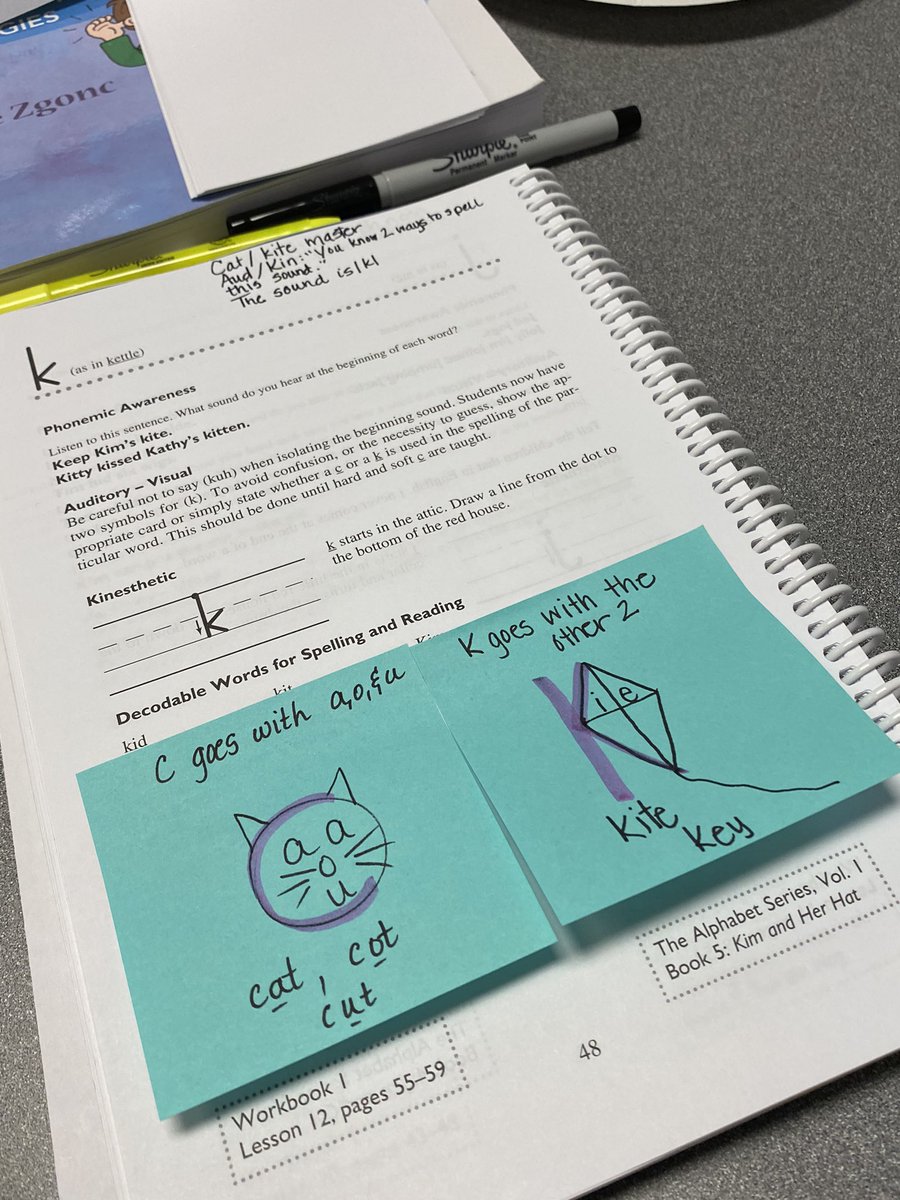 GIES
Zgonc
Sharpie
Permanent Marker
Cat/kite master
Aud/Kin: "You know 2 ways to spell
this sound."
The sound is /k/
k (as in kettle)
Phonemic Awareness
Listen to this sentence. What sound do you hear at the beginning of each word?
Keep Kim's kite.
Kitty kissed Kathy's kitten.
Auditory – Visual
Be careful not to say (kuh) when isolating the beginning sound. Students now have
two symbols for (k). To avoid confusion, or the necessity to guess, show the ap-
propriate card or simply state whether a c or a k is used in the spelling of the par-
ticular word. This should be done until hard and soft c are taught.
Kinesthetic
k
k starts in the attic. Draw a line from the dot to
the bottom of the red house.
Decodable Words for Spelling and Reading
kid
kit
C goes with a,o,&u
a a
o
u
cat, cot
cut
K goes with the
other 2
K i e
kite
key
The Alphabet Series, Vol. 1
Book 5: Kim and Her Hat
Workbook 1
Lesson 12, pages 55–59
48